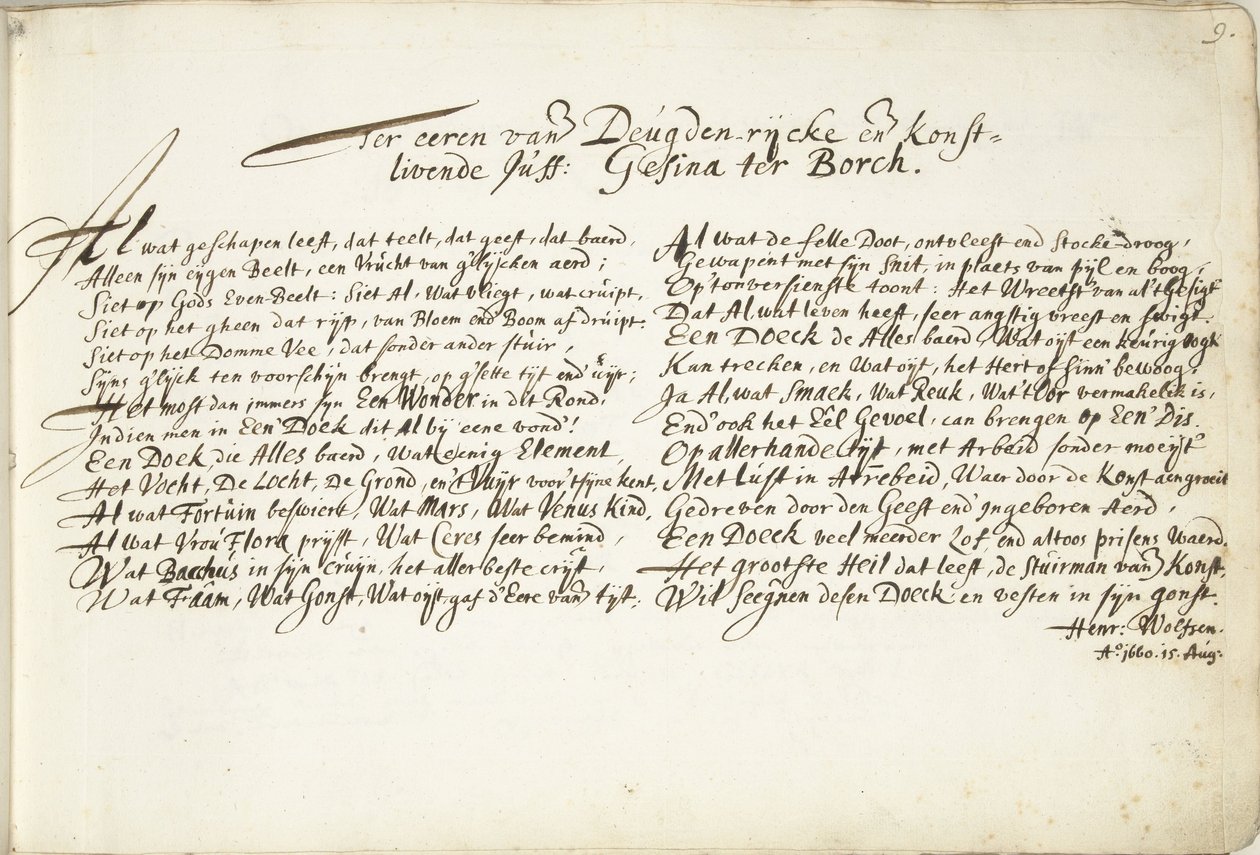 9.
Ter eeren van Deugden-rijcke en Konst=
livende Juff: Gesina ter Borch.
Al wat geschapen leeft, dat teelt, dat geeft, dat baerd,
Alleen sijn eygen Beelt, een Vrucht van g'lijcken aerd;
Siet op Gods Even-Beelt: Siet Al, Wat vliegt, wat cruipt,
Siet op het gheen dat rijp, van Bloem end Boom af druipt.
Siet op het Domme Vee, dat sonder ander stuir,
Sijns g'lijck ten voorschijn brengt, op g'sette tijt end uijr;
Het most dan immers sijn Een Wonder in dit Rond,
Indien men in Een Doek dit Al bij eene vond!
Een Doek, die Alles baerd, Wat eenig Element,
Het Vocht, De Locht, De Grond, en't Vuyr voor 't sijne kent,
Al wat Fortuin beswierk, Wat Mars, Wat Venus Kind,
Al wat Vrou Flora prijst, Wat Ceres seer bemind,
Wat Bacchus in sijn Cruijn, het aller beste crijt,
Wat Faam, Wat Gonst, Wat oijt gaf d'Eere van tijt;
Al wat de felle Doot, ontvleest end Stocke-droog,
Gewapent met sijn Snit, in plaets van pijl en boog,
Op 't onversienste toont: Het Wreetst' van al 't Gesigt
Dat Al, wat leven heeft, seer angstig vreest en swigt.
Een Doeck de Alles baerd, Wat oijt een keurig oogh
Kan trecken, en Wat oijt, het Hert of sinn' bewoog,
Ja Al, wat Smaek, Wat Reuk, Wat 't Oor vermakelik is,
End' ook het Eêl Gevoel, can brengen op Een' Dis.
Op allerhande tijt, met Arbeid sonder moeijt
Met Lust in Arrebeid, Waer door de Konst aengroeit
Gedreven door den Geest end' ingeboren Aerd,
Een Doeck veel meerder Lof, end altoos prisens Waerd.
Het grootste Heil dat leeft, de Stuirman van Konst,
Wil Seegnen desen Doeck en vesten in sijn gonst.
Henr: Wolfsen.
A:º 1660. 15. Aug: